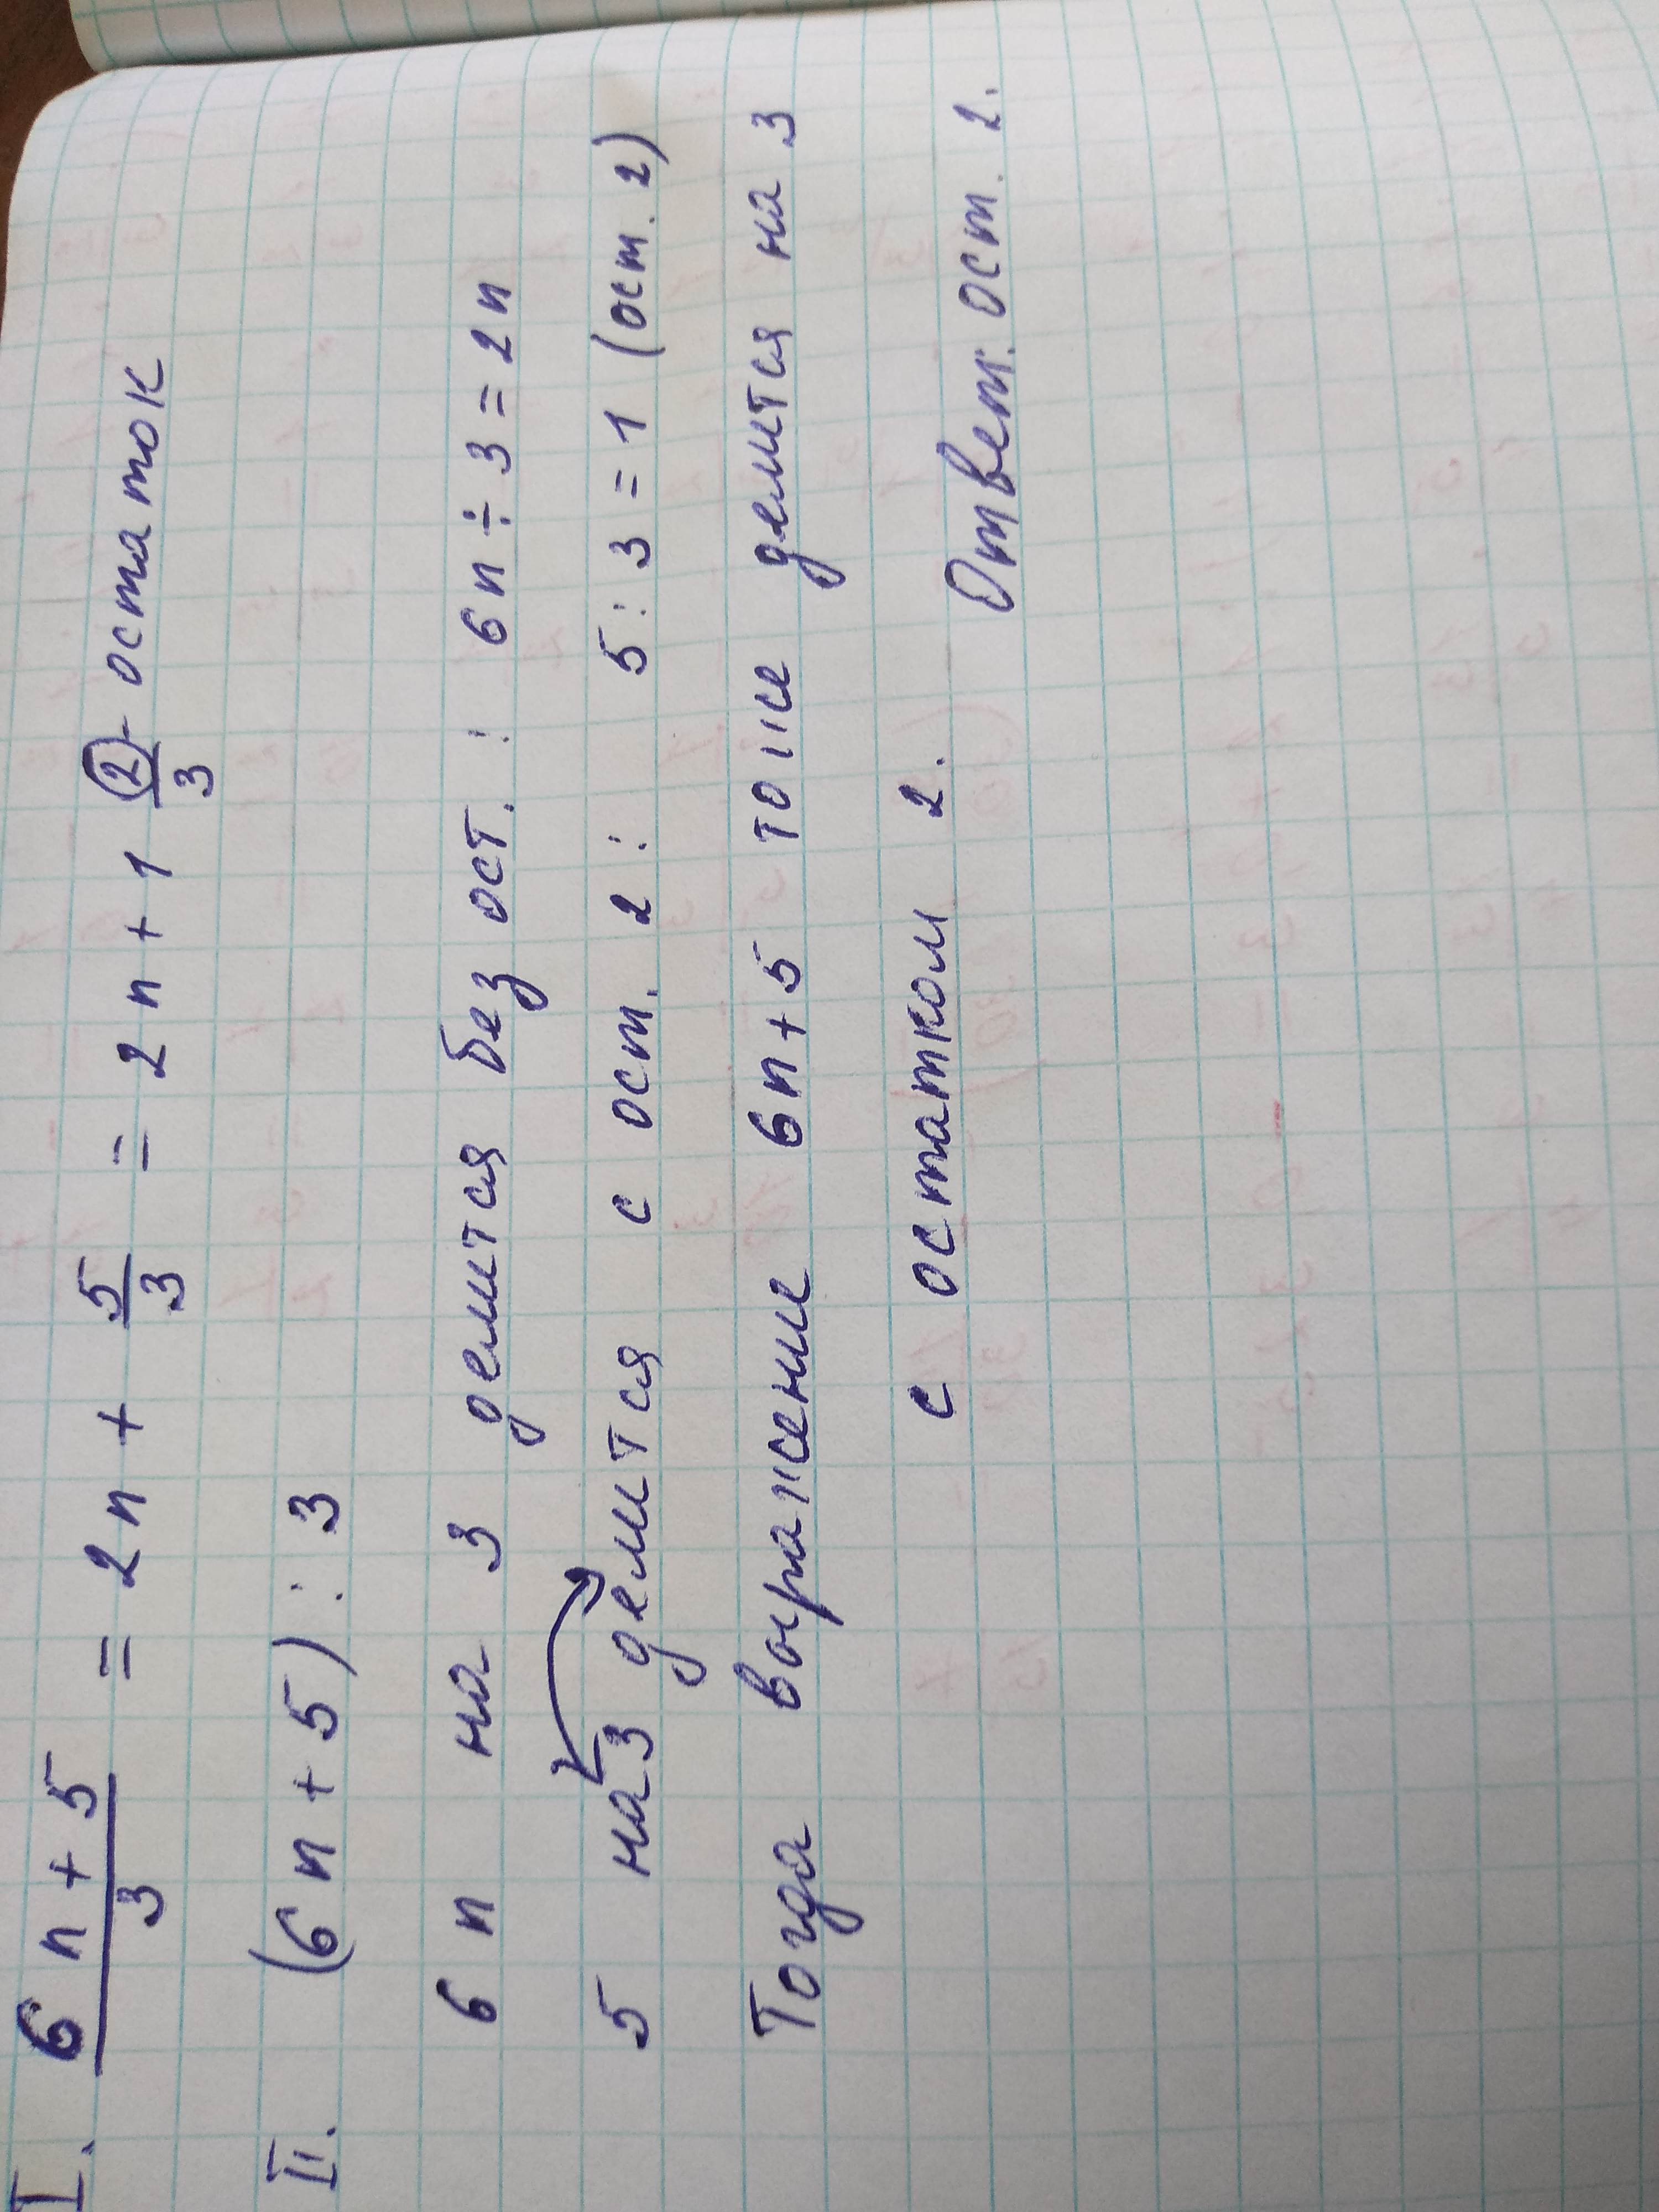 I. (6n+5)/3 = 2n + 5/3 = 2n + 1 2/3 - остаток
II. (6n+5) : 3
6n на 3 делится без ост.: 6n ÷ 3 = 2n
5 на 3 делится с ост. 2: 5 : 3 = 1 (ост. 2)
Тогда выражение 6n+5 тоже делится на 3
с остатком 2. Ответ: ост. 2.